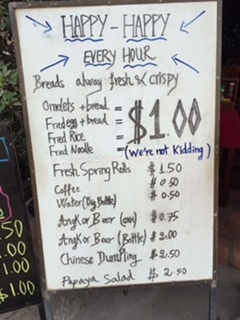 HAPPY - HAPPY
EVERY HOUR
Breads alway fresh & crispy
Omelets + bread =
Fried egg + bread =
Fried Rice =
Fried Noodle =
$1.00
(We're not Kidding)
Fresh Spring Rolls $ 1.50
Coffee $ 0.50
Water (Big Bottle) $ 0.50
Angkor Beer (can) $ 0.75
Angkor Beer (Bottle) $ 2.00
Chinese Dumpling $ 2.50
Papaya Salad $ 2.50
.50
1.00
1.00
$1.00